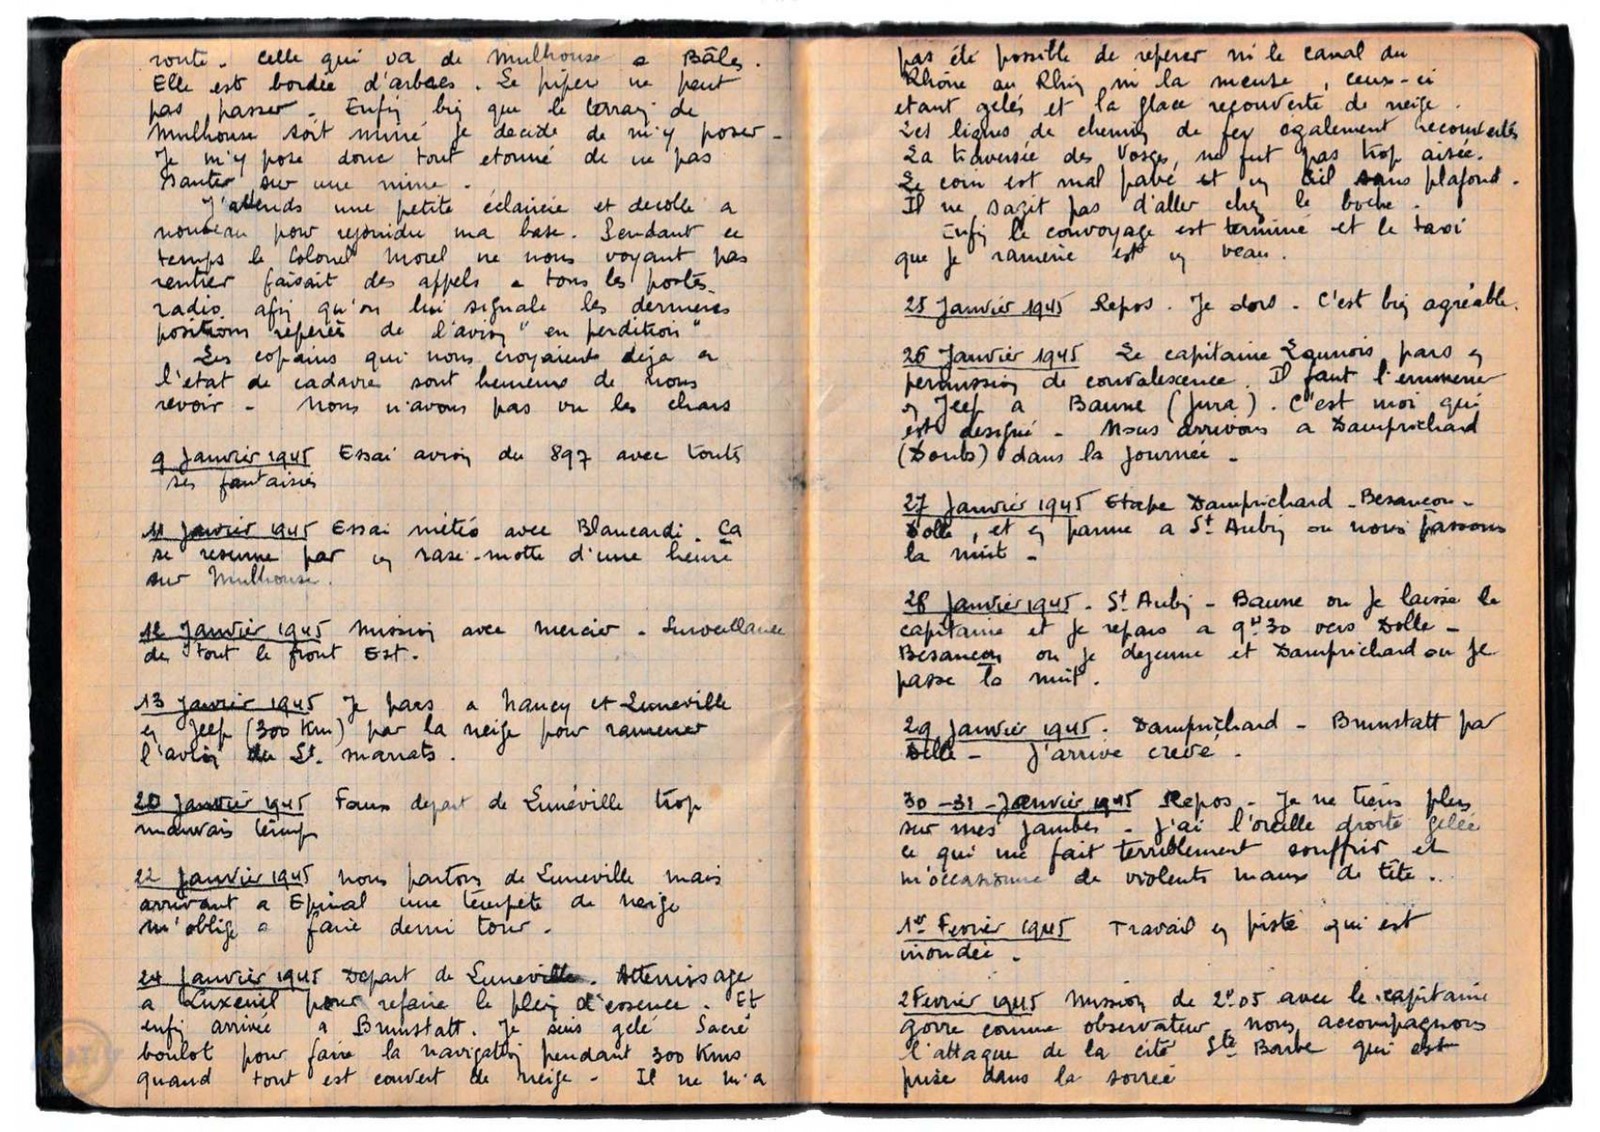 route - celle qui va de Mulhouse a Bâles.
Elle est bordée d'arbres. Le piper ne peut
pas passer - Enfin bien que le terrain de
Mulhouse soit miné je decide de m'y poser -
Je m'y pose donc tout etonné de ne pas
sauter sur une mine.
J'attends une petite éclaircie et decolle a
nouveau pour rejoindre ma base. Pendant ce
temps le Colonel Morel ne nous voyant pas
rentrer faisait des appels a tous les postes
radio afin qu'on lui signale les dernieres
positions reperées de l'avion "en perdition"
Les copains qui nous croyaient deja a
l'etat de cadavre sont heureux de nous
revoir - Nous n'avons pas vu les chars
9 Janvier 1945 Essai avion du 897 avec toutes
ses fantaisies
11 Janvier 1945 Essai météo avec Blancardi. Ça
se resume par un rase-motte d'une heure
sur Mulhouse.
12 Janvier 1945 Mission avec Mercier - Surveillance
de tout le front Est.
13 Janvier 1945 Je pars a Nancy et Luneville
en Jeep (300 Km) par la neige pour ramener
l'avion du Lt. Marrats.
20 Janvier 1945 Faux depart de Lunéville trop
mauvais temps
22 Janvier 1945 Nous partons de Luneville mais
arrivant a Epinal une tempete de neige
m'oblige a faire demi tour.
24 Janvier 1945 Depart de Luneville. Atterrissage
a Luxeuil pour refaire le plein d'essence. Et
enfin arrivée a Brunstatt. Je suis gelé Sacré
boulot pour faire la navigation pendant 300 Kms
quand tout est couvert de neige - Il ne m'a
pas été possible de reperer ni le canal du
Rhône au Rhin ni la meuse, ceux-ci
etant gelés et la glace recouverte de neige.
Les lignes de chemin de fer également recouvertes
La traversée des Vosges, ne fut pas trop aisée.
Le coin est mal pavé et un ciel sans plafond.
Il ne sagit pas d'aller chez le boche.
Enfin le convoyage est terminé et le taxi
que je ramene est un veau.
25 Janvier 1945 Repos. Je dors - C'est bien agréable.
26 Janvier 1945 Le capitaine pars en
permission de convalescence. Il faut l'emmener
en Jeep a Baume (Jura). C'est moi qui
est designé - Nous arrivons a Damprichard
(Doubs) dans la journée -
27 Janvier 1945 Etape Damprichard - Besancon -
Dolle, et en panne a St Aubin ou nous passons
la nuit -
28 Janvier 1945 - St Aubin - Baume ou Je laisse le
capitaine et je repars a 9H30 vers Dolle -
Besancon ou je dejeune et Damprichard ou je
passe la nuit.
29 Janvier 1945. Damprichard - Brunstatt par
Delle - J'arrive crevé.
30 - 31 - Janvier 1945 Repos - Je ne tiens plus
sur mes jambes - J'ai l'oreille droite gelée
ce qui me fait terriblement souffrir et
m'occasionne de violents maux de tête..
1er Fevrier 1945 Travail en piste qui est
inondée.
2 Fevrier 1945 Mission de 2H05 avec le capitaine
Gorre comme observateur, nous accompagnons
l'attaque de la cité Ste Barbe qui est
prise dans la soirée